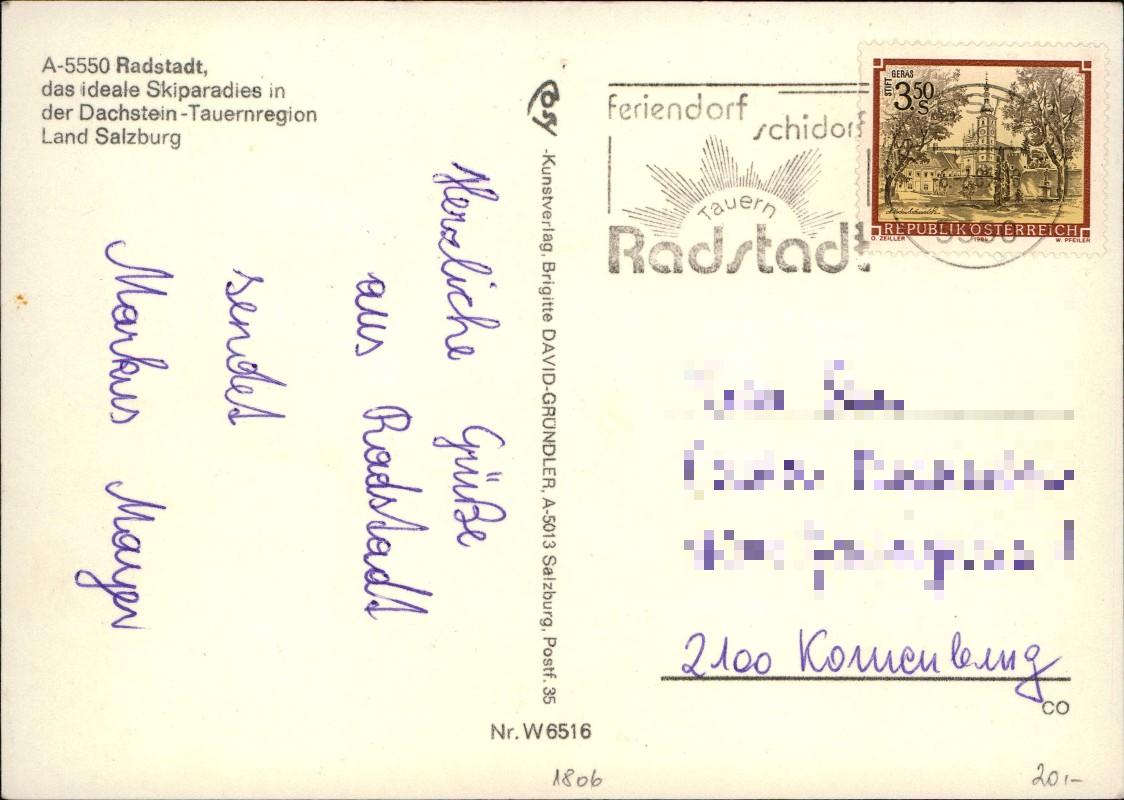 A-5550 Radstadt,
das ideale Skiparadies in
der Dachstein-Tauernregion
Land Salzburg
Herzliche Grüße
aus Radstadt
sendet
Markus Mayer
Cosy -Kunstverlag, Brigitte DAVID-GRÜNDLER, A-5013 Salzburg, Postf. 35
Nr. W6516
feriendorf
schidorf
Tauern
Radstadt
STIFT GERAS
3.50
S
REPUBLIK ÖSTERREICH
O. ZEILLER 1984 W. PFEILER
5550
2100 Korneuburg
CO
1806
20,-